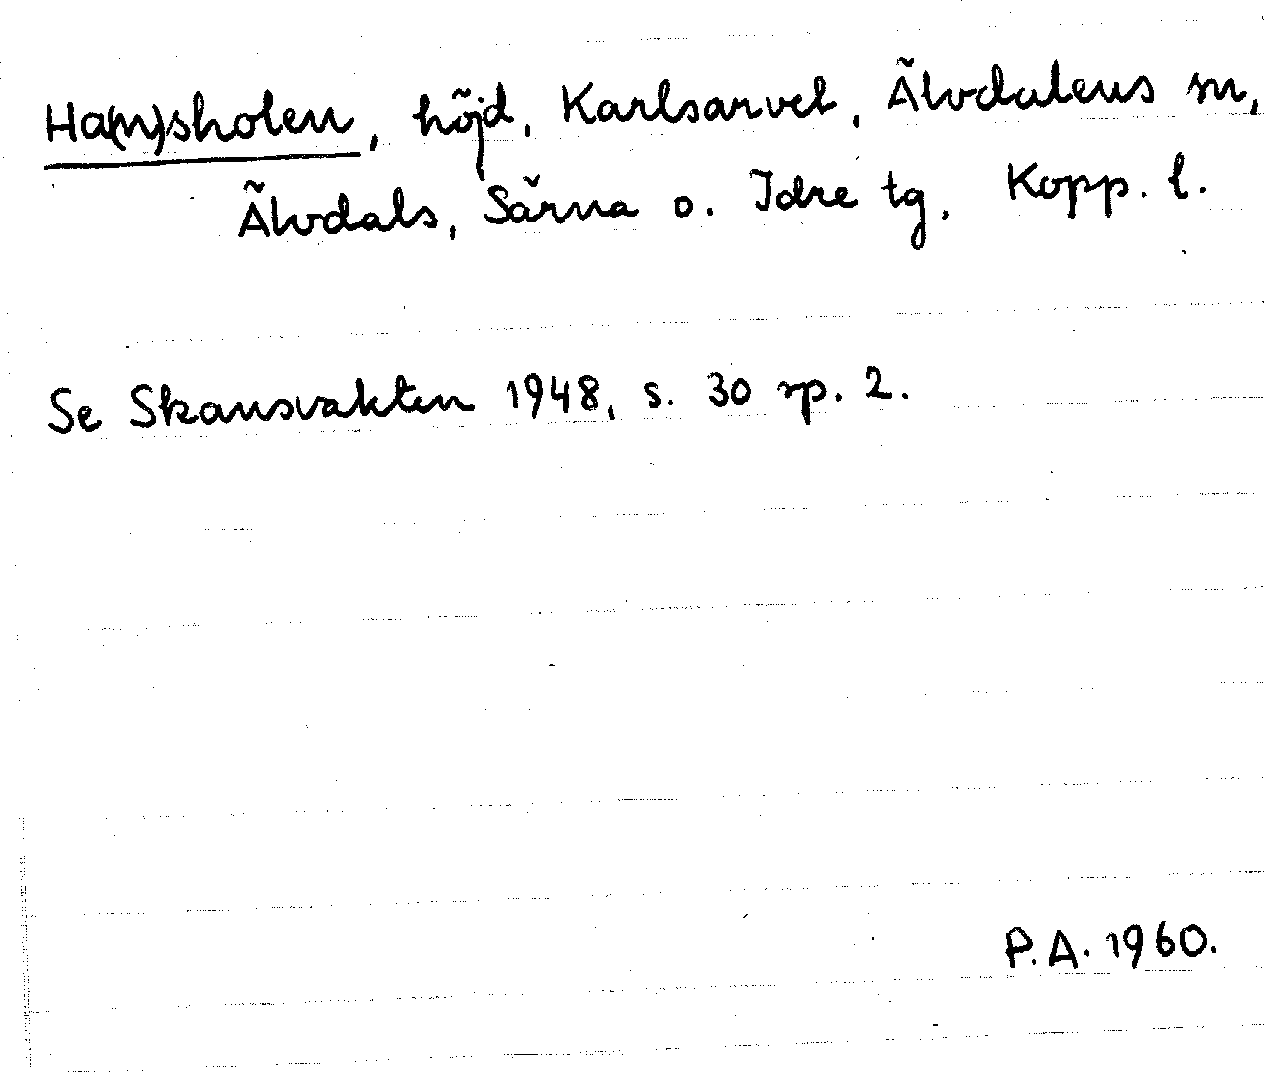 Ha(n)sholen, höjd, Karlsarvet, Älvdalens sn,
Älvdals, Särna o. Idre tg, Kopp. l.
Se Skansvakten 1948, s. 30 sp. 2.
P.A. 1960.